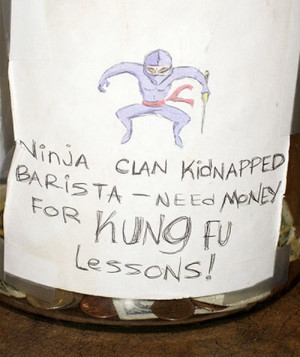 Ninja CLAN KidNAPPED
BARISTA – NEEd MONEY
FOR KUNG FU
Lessons!